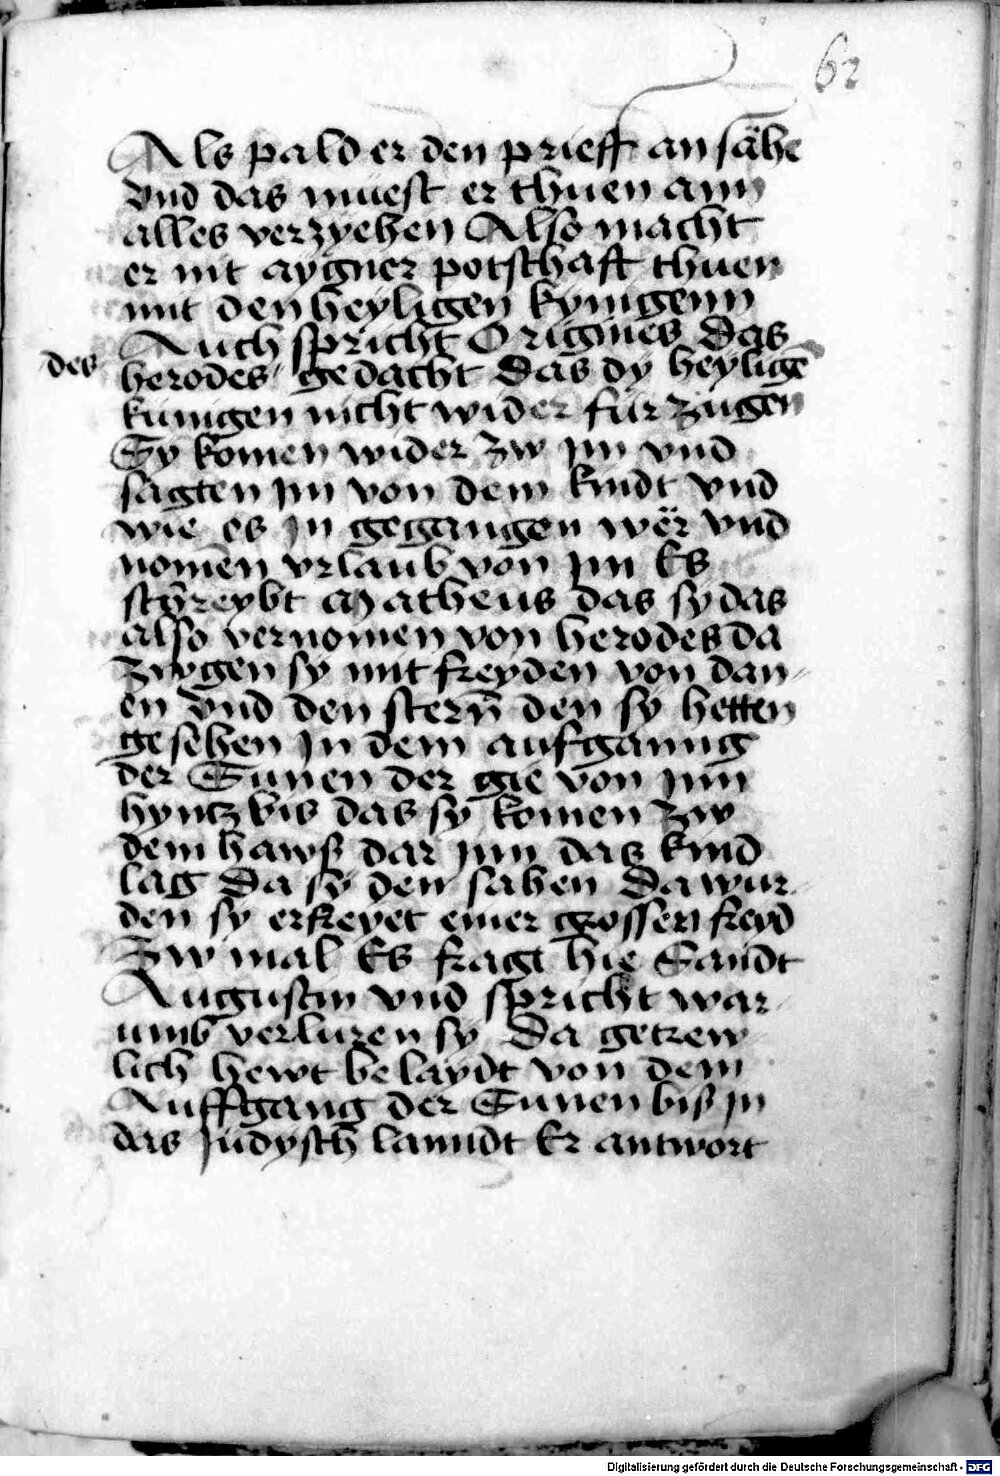 62
Als pald er den prieff an sähe
vnd das muest er thuen ann
alles verzyehen Also macht
er nit aygner potschafft thuen
mit den heyligen kynigenn
Auch spricht Origines Das
des
herodes gedacht Das dy heylige
künigen nicht wider für zugen
Sy komen wider zw im vnd
sagten im von dem kindt vnd
wie es in gegangen wër vnd
nomen vrlaub von im Es
schreybt Matheus das sy das
also vernomen von herodes da
zwgen sy mit freyden von dan-
en vnd den stern den sy hetten
gesehen In dem aufganng
der Sunen der gie von inn
hyntz bis das sy komen zw
dem hawß dar inn das kind
lag Da sy den sahen Da wur-
den sy erfreyet einer grossen freyd
Zw mal Es fragt hie Sandt
Augustin vnd spricht war-
umb verluren sy Da getrew-
lich hewt belaydt von dem
Auffgang der Sunen biß in
das Judysch lanndt Er antwort
Digitalisierung gefördert durch die Deutsche Forschungsgemeinschaft - DFG